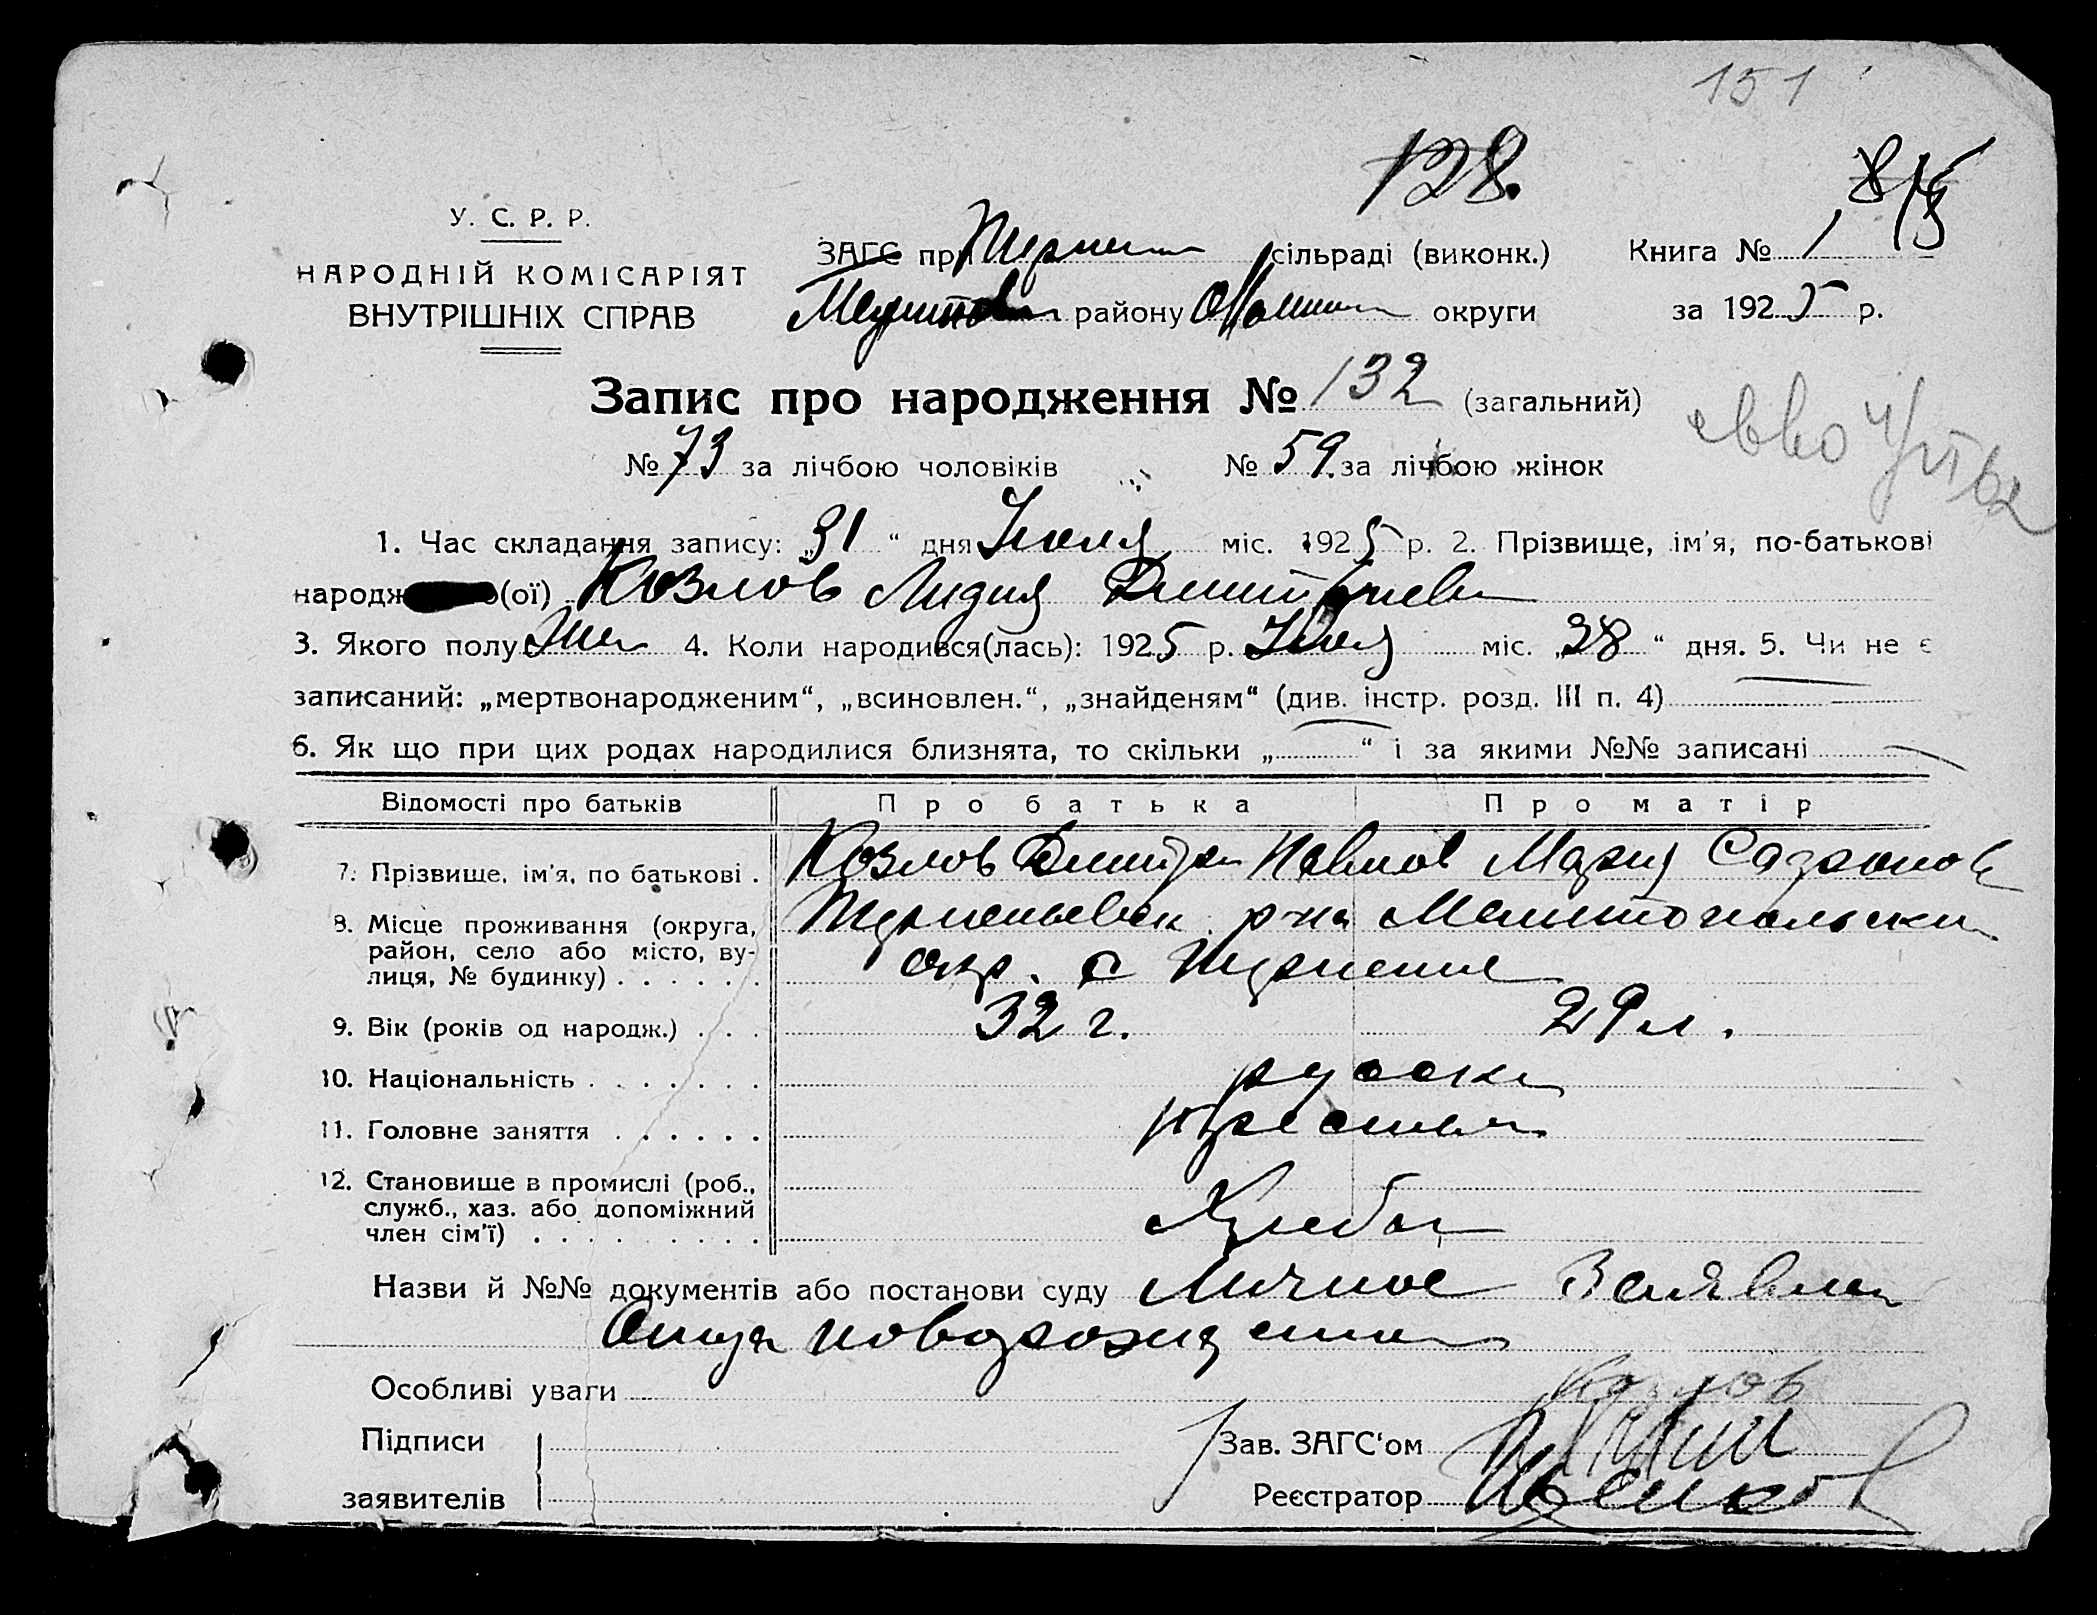 151
128.
У. С. Р. Р.
НАРОДНІЙ КОМІСАРІЯТ
ВНУТРІШНІХ СПРАВ
ЗАГС при сільраді (виконк.)
Книга № 1
району округи
за 1925 р.
Запис про народження № 132 (загальний)
№ 73 за лічбою чоловіків № 59. за лічбою жінок
1. Час складання запису: „31“ дня Июля міс. 1925 р. 2. Прізвище, ім'я, по-батькові
народж (ої) Козлов Лидия Дмитриев
3. Якого полу Жен 4. Коли народився(лась): 1925 р. Июля міс. „28“ дня. 5. Чи не є
записаний: „мертвонародженим“, „всиновлен.“, „знайденям“ (див. інстр. розд. III п. 4)
6. Як що при цих родах народилися близнята, то скільки „ “ і за якими №№ записані
Відомості про батьків Про батька Про матір
7. Прізвище, ім'я, по батькові . Козлов Дмитри Павлов Мария Сафронов
8. Місце проживання (округа,
район, село або місто, ву-
лиця, № будинку) . . . . . .
р-на Мелитопольски
окр. с
9. Вік (років од народж.) . . . 32 г. 29 л.
10. Національність . . . . . . . русски
11. Головне заняття . . . . . . крестьян
12. Становище в промислі (роб.,
служб., хаз. або допоміжний
член сім'ї) . . . . . . . . . Хлебо
Назви й №№ документів або постанови суду Личное Заявлен
Отца новорожденно
Особливі уваги
Козлов
Підписи
заявителів
Зав. ЗАГС'ом
Реєстратор